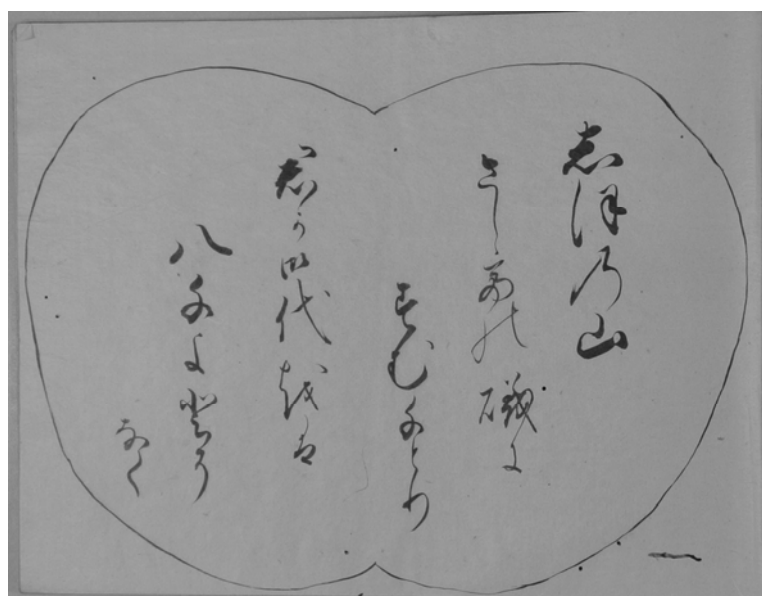 志ほの山
さしての磯に
すむ千とり
君か御代をは
八千よとそ
なく
一